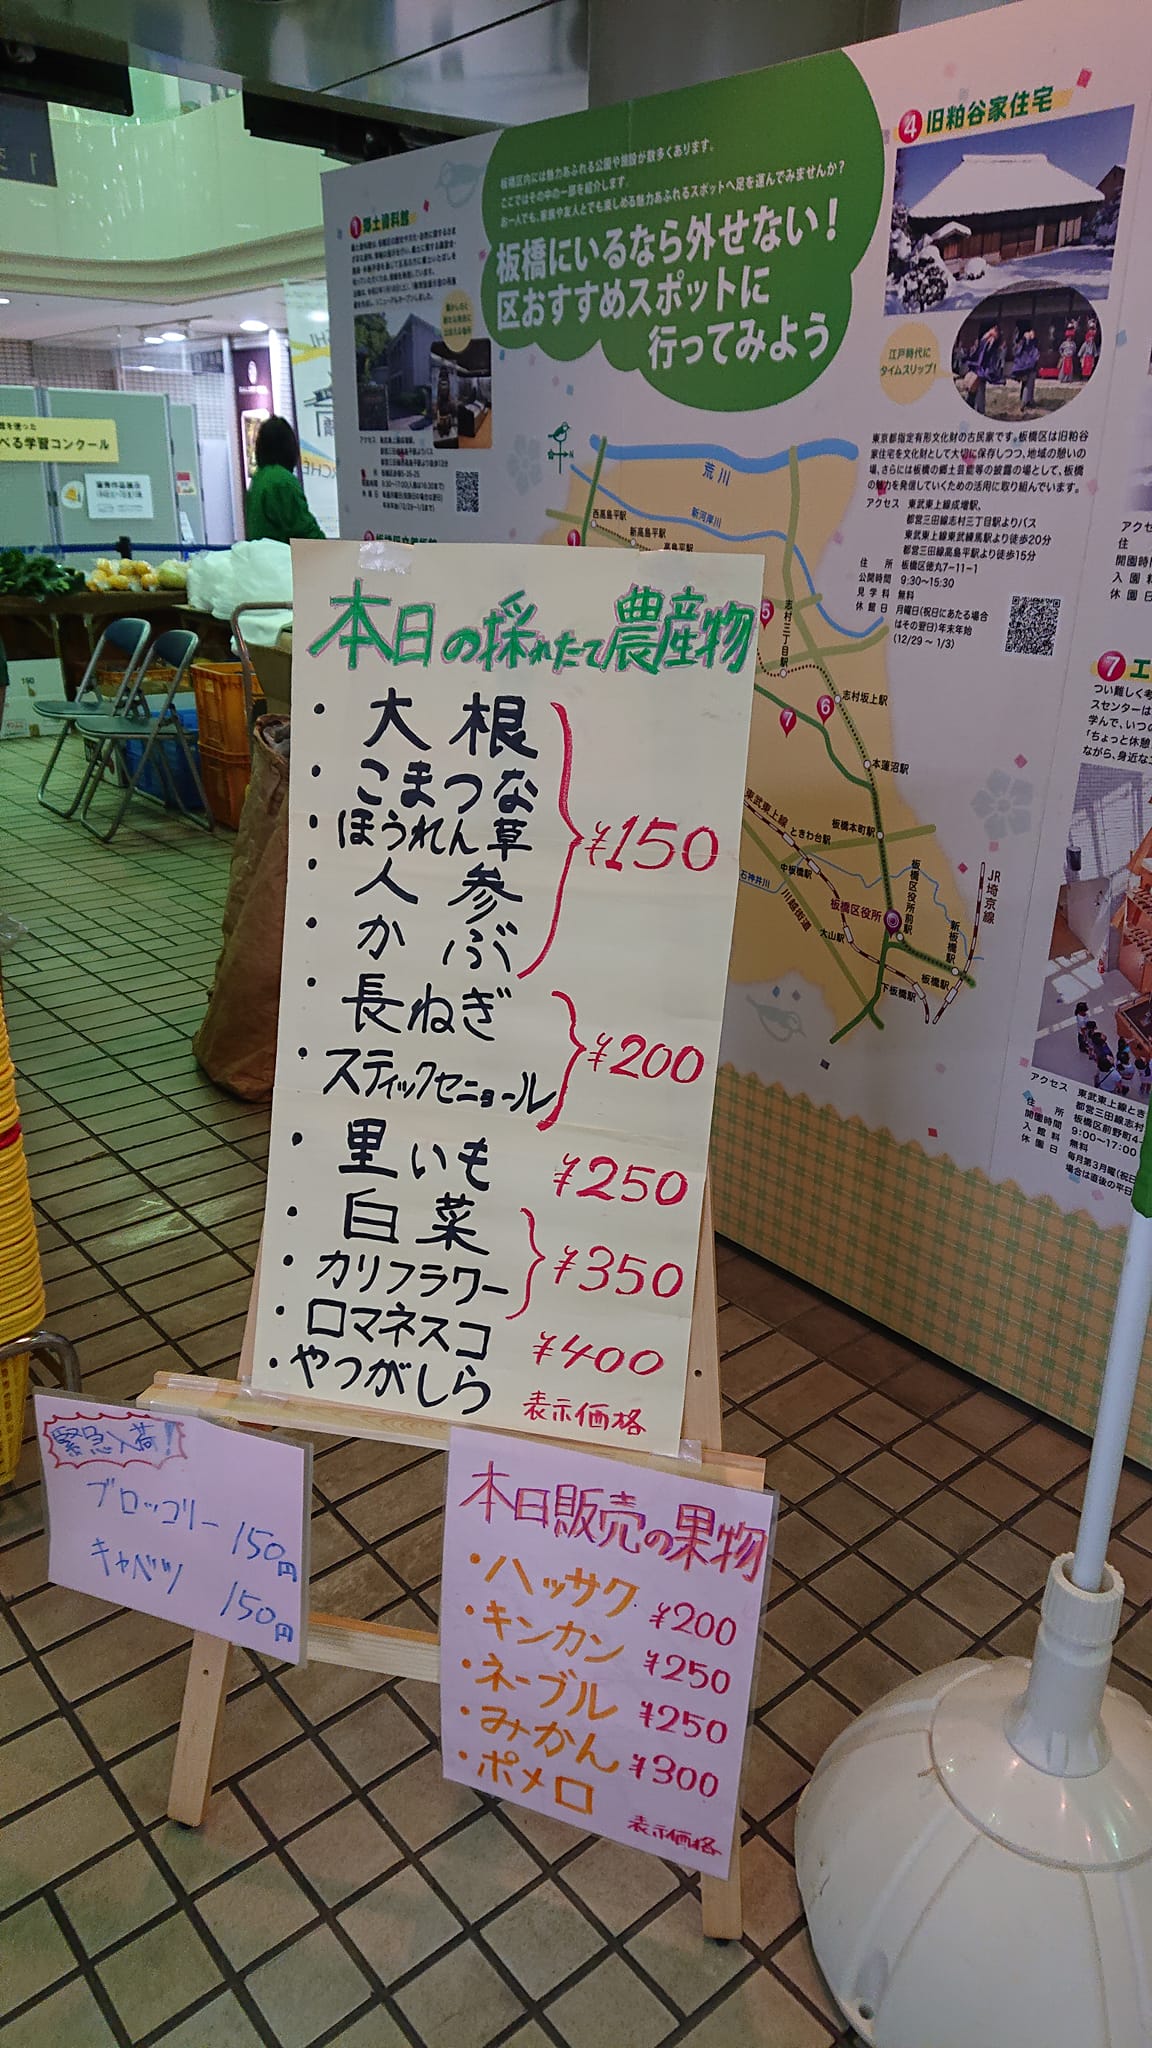 板橋区内には魅力あふれる公園や施設が数多くあります。
ここではその中の一部を紹介します。
お一人でも、家族や友人とでも楽しめる魅力あふれるスポットへ足を運んでみませんか？
板橋にいるなら外せない！
区おすすめスポットに
行ってみよう
1 郷土資料館
4 旧粕谷家住宅
江戸時代に
タイムスリップ！
東京都指定有形文化財の古民家です。板橋区は旧粕谷
家住宅を文化財として大切に保存しつつ、地域の憩いの
場、さらには板橋の郷土芸能等の披露の場として、板橋
の魅力を発信していくための活用に取り組んでいます。
アクセス 東武東上線成増駅、
都営三田線志村三丁目駅よりバス
東武東上線東武練馬駅より徒歩20分
都営三田線高島平駅より徒歩15分
住所 板橋区徳丸7-11-1
公開時間 9:30〜15:30
見学料 無料
休館日 月曜日(祝日にあたる場合
はその翌日)年末年始
(12/29〜1/3)
べる学習コンクール
荒川
新河岸川
西高島平駅
新高島平駅
高島平駅
5
志村三丁目駅
6
志村坂上駅
7
本蓮沼駅
東武東上線
ときわ台駅
板橋本町駅
中板橋駅
石神井川
川越街道
板橋区役所
板橋区役所前駅
大山駅
新板橋駅
板橋駅
下板橋駅
JR埼京線
7 エ
アクセス 東武東上線とき
都営三田線志村
住所 板橋区前野町4-
開園時間 9:00〜17:00
入館料 無料
休園日 毎月第3月曜(祝日
場合は直後の平日
本日の採れたて農産物
・大根
・こまつな
・ほうれん草
・人参
・かぶ
¥150
・長ねぎ
・スティックセニョール
¥200
・里いも ¥250
・白菜
・カリフラワー
¥350
・ロマネスコ ¥400
・やつがしら 表示価格
緊急入荷！
ブロッコリー 150円
キャベツ 150円
本日販売の果物
・ハッサク ¥200
・キンカン ¥250
・ネーブル ¥250
・みかん ¥300
・ポメロ 表示価格